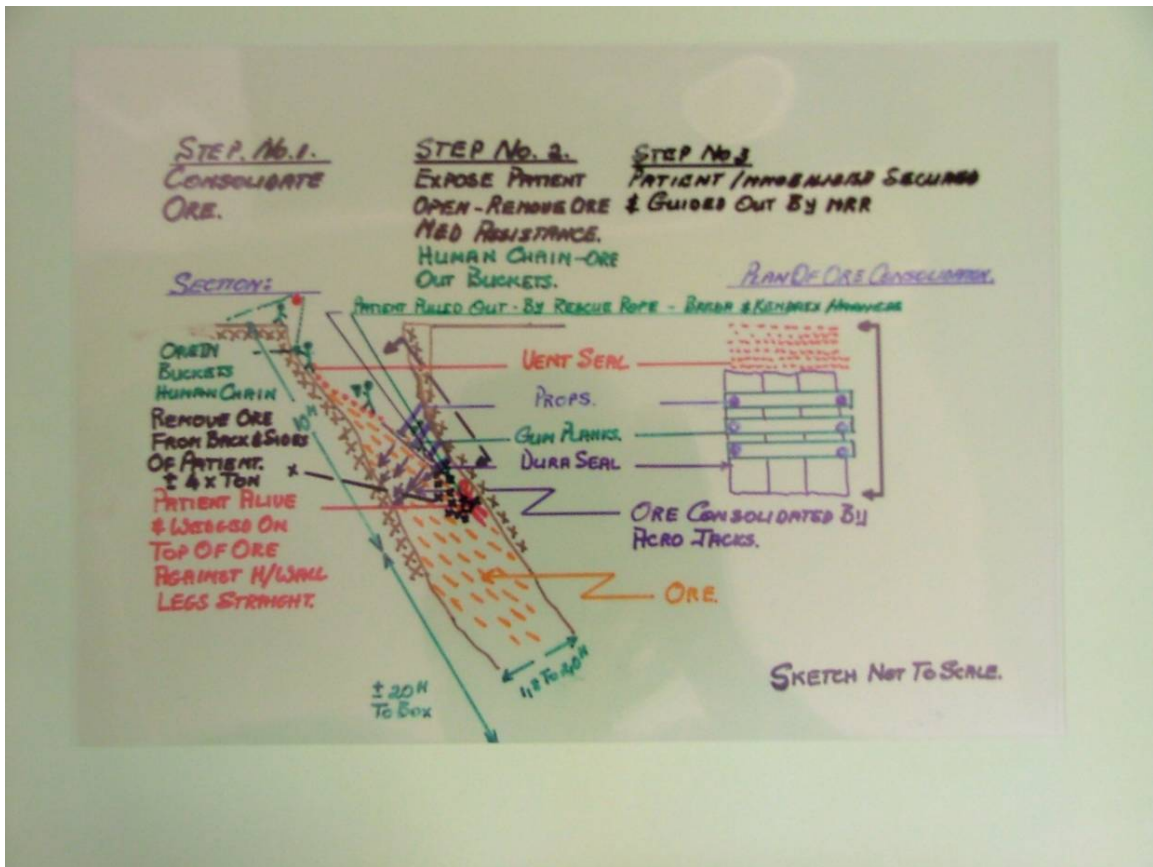 STEP. No.1.
CONSOLIDATE
ORE.
STEP No. 2.
EXPOSE PATIENT
OPEN - REMOVE ORE
MED ASSISTANCE.
HUMAN CHAIN - ORE
OUT BUCKETS.
STEP No 3
PATIENT IMMOBILISED SECURED
& GUIDED OUT BY MRR
SECTION:
PLAN OF ORE CONSOLIDATION.
PATIENT PULLED OUT - BY RESCUE ROPE - & HARNESS
ORE IN
BUCKETS
HUMAN CHAIN
REMOVE ORE
FROM BACK & SIDES
OF PATIENT.
± 4 x TON
PATIENT ALIVE
& WEDGED ON
TOP OF ORE
AGAINST H/WALL
LEGS STRAIGHT.
10M
± 20M
TO BOX
VENT SEAL
PROPS.
GUM PLANKS.
DURA SEAL
ORE CONSOLIDATED BY
ACRO JACKS.
ORE.
SKETCH NOT TO SCALE.